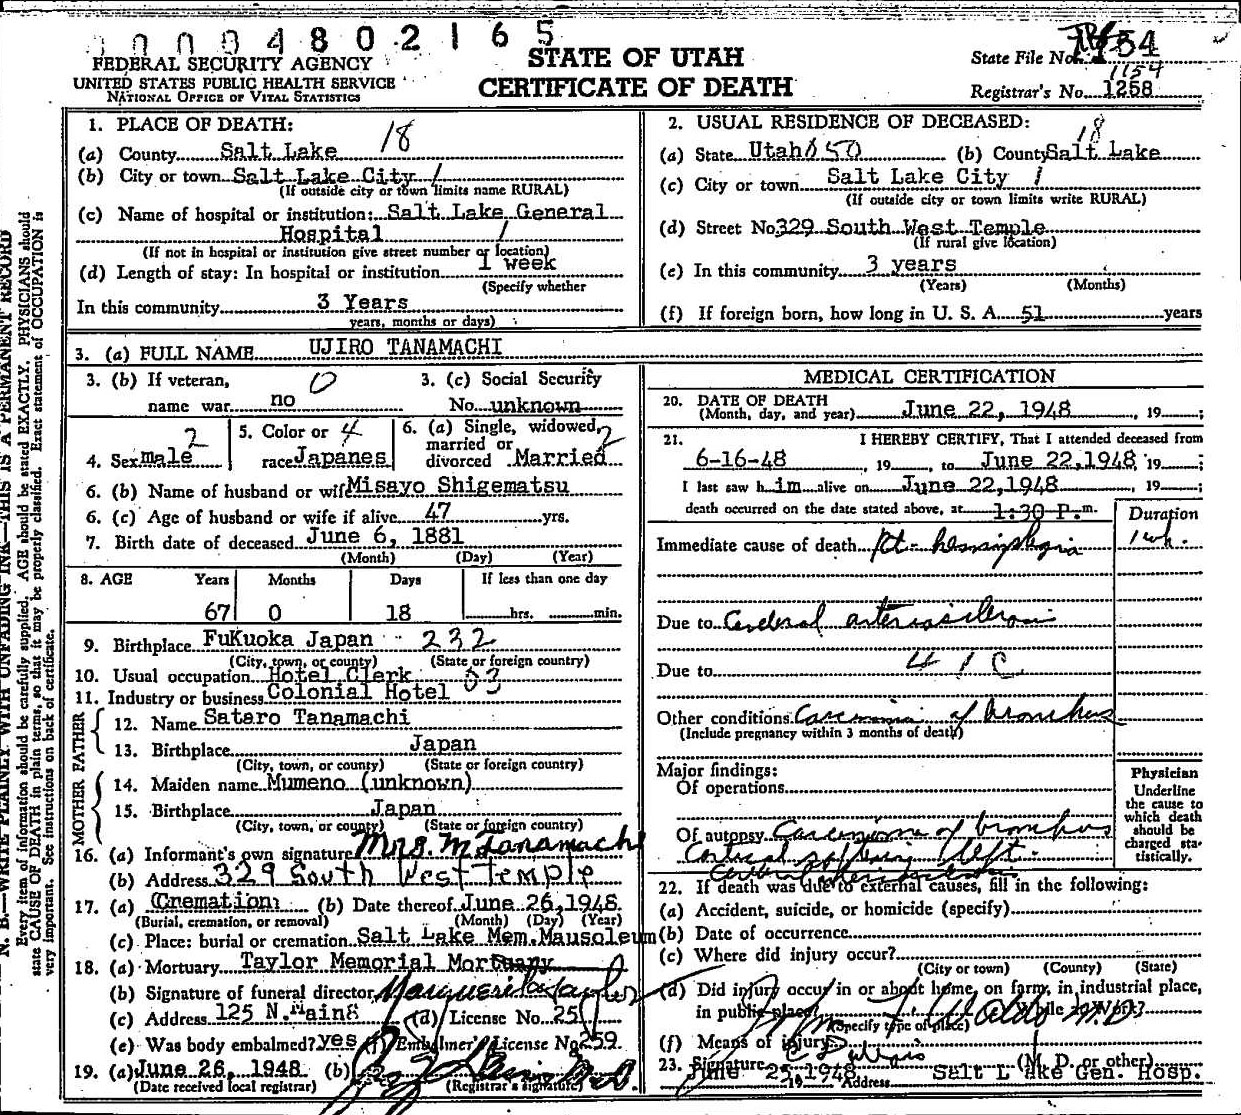 0 0 0 0 4 8 0 2 1 6 5
FEDERAL SECURITY AGENCY
UNITED STATES PUBLIC HEALTH SERVICE
NATIONAL OFFICE OF VITAL STATISTICS
STATE OF UTAH
CERTIFICATE OF DEATH
State File No. 54
1154
Registrar's No. 1258
N. B.—WRITE PLAINLY WITH UNFADING INK—THIS IS A PERMANENT RECORD
Every item of information should be carefully supplied. AGE should be stated EXACTLY. PHYSICIANS should
state CAUSE OF DEATH in plain terms, so that it may be properly classified. Exact statement of OCCUPATION is
very important. See instructions on back of certificate.
1. PLACE OF DEATH: 18
(a) County Salt Lake
(b) City or town Salt Lake City 1
(If outside city or town limits name RURAL)
(c) Name of hospital or institution: Salt Lake General
Hospital 1
(If not in hospital or institution give street number or location)
(d) Length of stay: In hospital or institution 1 week
(Specify whether
In this community 3 Years
years, months or days)
2. USUAL RESIDENCE OF DECEASED: 18
(a) State Utah 50 (b) County Salt Lake
(c) City or town Salt Lake City 1
(If outside city or town limits write RURAL)
(d) Street No 329 South West Temple
(If rural give location)
(e) In this community 3 years
(Years) (Months)
(f) If foreign born, how long in U. S. A. 51 years
3. (a) FULL NAME UJIRO TANAMACHI
3. (b) If veteran, 0
name war no
3. (c) Social Security
No. unknown
4. Sex male 2
5. Color or 4
race Japanes
6. (a) Single, widowed, 2
married or
divorced Married
6. (b) Name of husband or wife Misayo Shigematsu
6. (c) Age of husband or wife if alive 47 yrs.
7. Birth date of deceased June 6, 1881
(Month) (Day) (Year)
8. AGE Years Months Days If less than one day
67 0 18 hrs. min.
9. Birthplace FuKuoka Japan 232
(City, town, or county) (State or foreign country)
10. Usual occupation Hotel Clerk 53
11. Industry or business Colonial Hotel
FATHER
12. Name Sataro Tanamachi
13. Birthplace Japan
(City, town, or county) (State or foreign country)
MOTHER
14. Maiden name Mumeno (unknown)
15. Birthplace Japan
(City, town, or county) (State or foreign country)
16. (a) Informant's own signature Mrs. M Tanamachi
(b) Address 329 South West Temple
17. (a) Cremation (b) Date thereof June 26, 1948
(Burial, cremation, or removal) (Month) (Day) (Year)
(c) Place: burial or cremation Salt Lake Mem. Mausoleum
18. (a) Mortuary Taylor Memorial Mortuary
(b) Signature of funeral director Marguerite Taylor
(c) Address 125 N. Main (d) License No. 251
(e) Was body embalmed? yes (f) Embalmer's License No. 259
19. (a) June 26, 1948 (b)
(Date received local registrar) (Registrar's signature)
MEDICAL CERTIFICATION
20. DATE OF DEATH
(Month, day, and year) June 22, 1948, 19 ;
21. I HEREBY CERTIFY, That I attended deceased from
6-16-48, 19 , to June 22, 1948, 19 ;
I last saw h im alive on June 22, 1948, 19 ;
death occurred on the date stated above, at 1:30 P.m.
Duration
Immediate cause of death Rt- hemiplegia 1 wk.
Due to Cerebral arteriosclerosis
Due to 4 1 C
Other conditions Carcinoma of bronchus
(Include pregnancy within 3 months of death)
Major findings:
Of operations
Of autopsy Carcinoma of bronchus
Cortical softening left.
Cerebral arteriosclerosis
Physician
Underline
the cause to
which death
should be
charged sta-
tistically.
22. If death was due to external causes, fill in the following:
(a) Accident, suicide, or homicide (specify)
(b) Date of occurrence
(c) Where did injury occur?
(City or town) (County) (State)
(d) Did injury occur in or about home, on farm, in industrial place,
in public place? While at work?
(Specify type of place)
(f) Means of injury
23. Signature (M. D. or other)
June 25, 1948 19 Address Salt L ake Gen. Hosp.